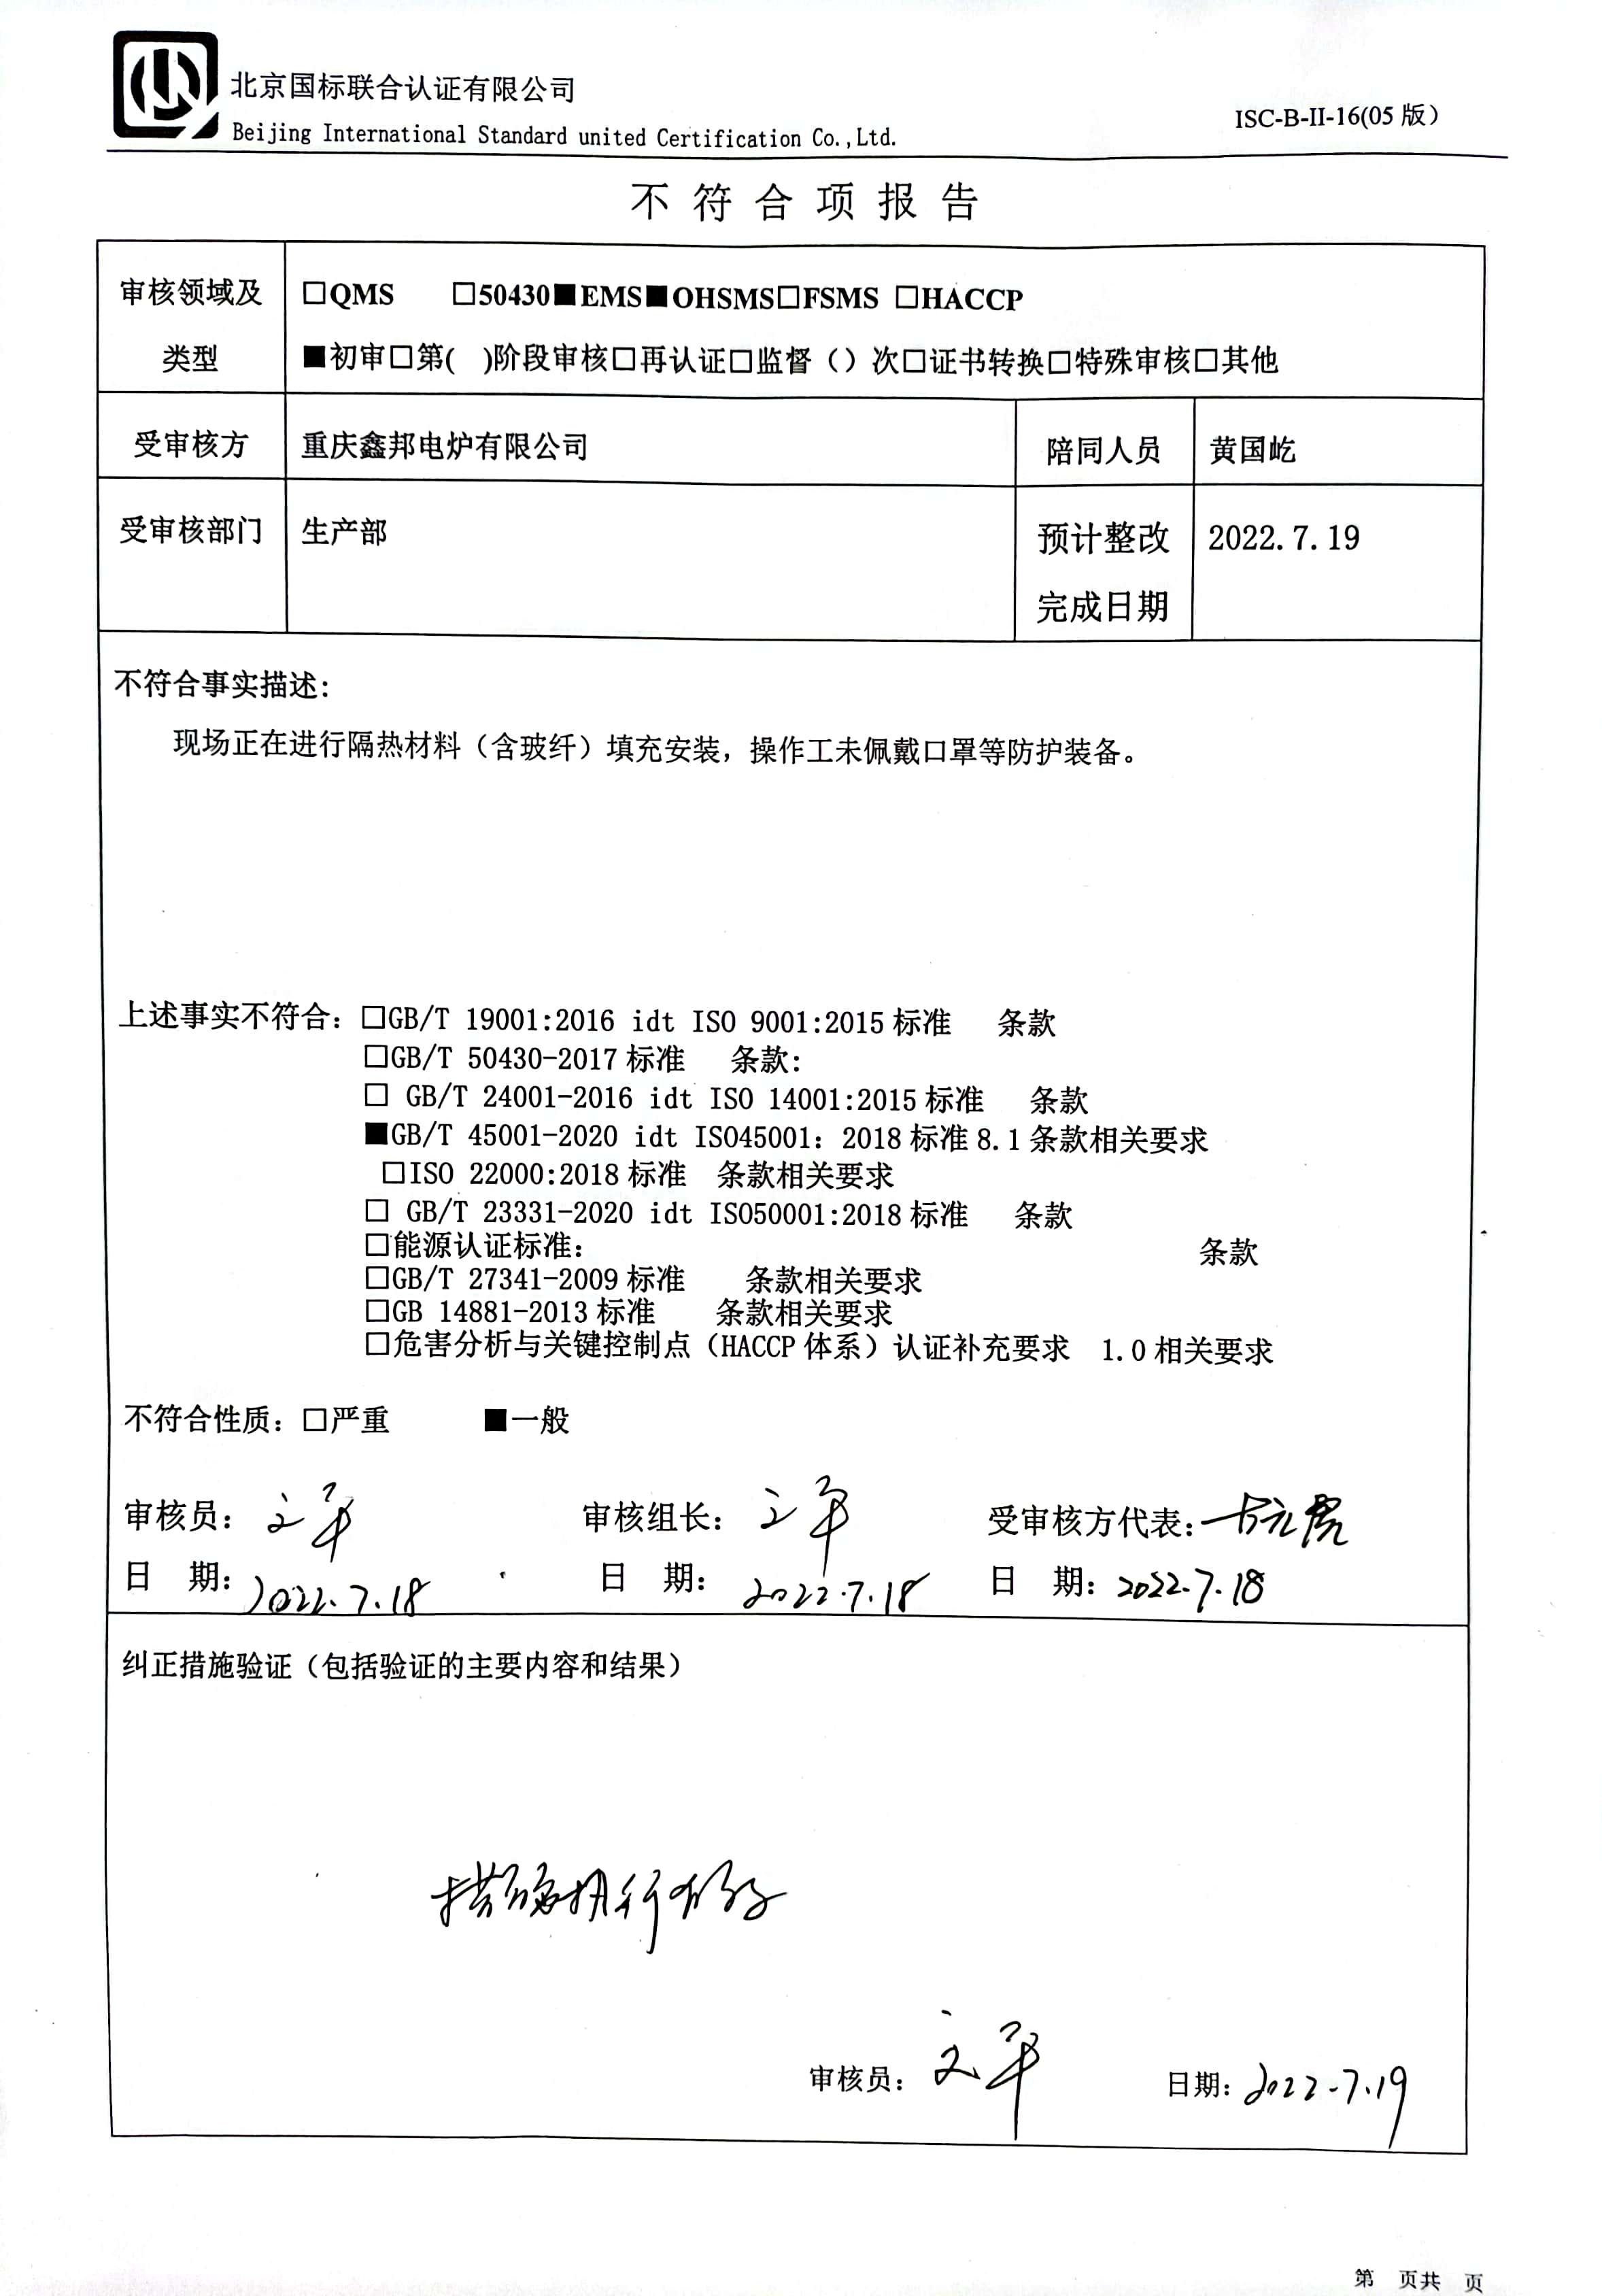 北京国标联合认证有限公司
Beijing International Standard united Certification Co.,Ltd.
ISC-B-II-16(05 版)
不符合项报告
审核领域及类型
□QMS □50430■EMS■OHSMS□FSMS □HACCP
■初审□第( )阶段审核□再认证□监督()次□证书转换□特殊审核□其他
受审核方 重庆鑫邦电炉有限公司 陪同人员 黄国屹
受审核部门 生产部 预计整改完成日期 2022.7.19
不符合事实描述:
现场正在进行隔热材料（含玻纤）填充安装，操作工未佩戴口罩等防护装备。
上述事实不符合：□GB/T 19001:2016 idt ISO 9001:2015 标准 条款
□GB/T 50430-2017 标准 条款:
□ GB/T 24001-2016 idt ISO 14001:2015 标准 条款
■GB/T 45001-2020 idt ISO45001：2018 标准 8.1 条款相关要求
□ISO 22000:2018 标准 条款相关要求
□ GB/T 23331-2020 idt ISO50001:2018 标准 条款
□能源认证标准: 条款
□GB/T 27341-2009 标准 条款相关要求
□GB 14881-2013 标准 条款相关要求
□危害分析与关键控制点（HACCP 体系）认证补充要求 1.0 相关要求
不符合性质：□严重 ■一般
审核员：文平 审核组长：文平 受审核方代表：
日 期：2022.7.18 日 期：2022.7.18 日 期：2022.7.18
纠正措施验证（包括验证的主要内容和结果）
措施执行有效
审核员：文平 日期：2022.7.19
第 页共 页